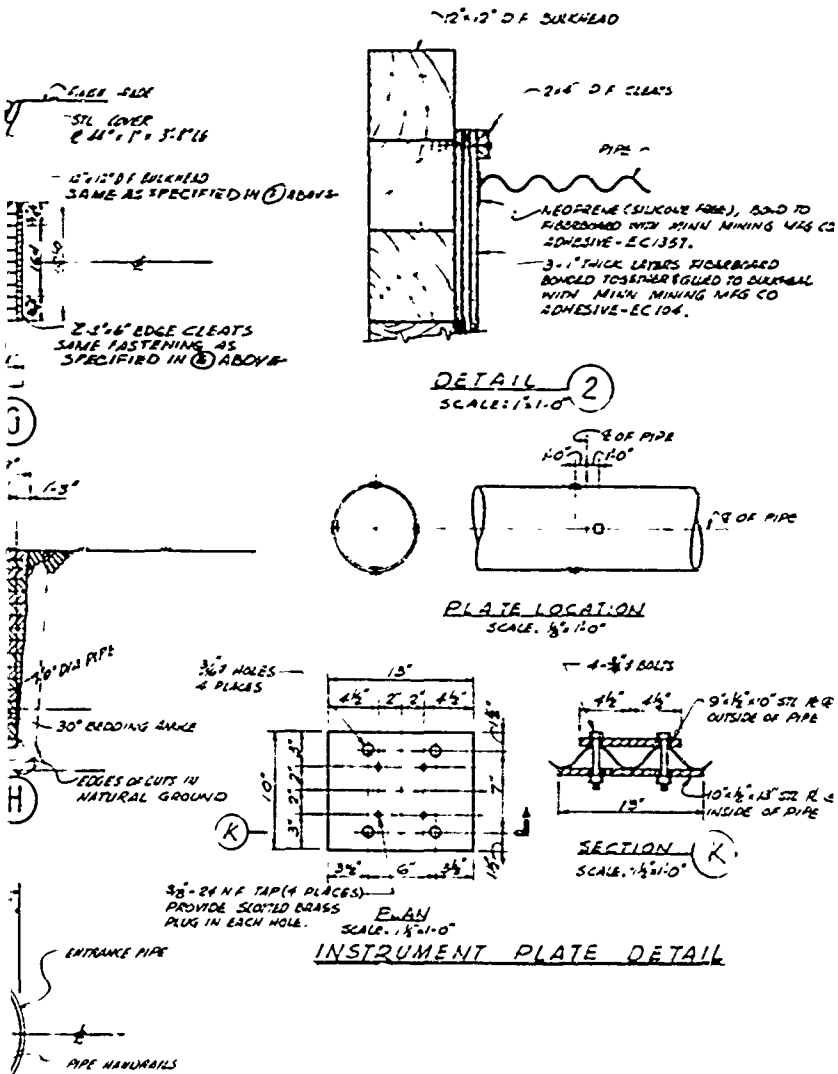 12"x12" D.F. BULKHEAD
STL COVER
12"x12" D.F. BULKHEAD
SAME AS SPECIFIED IN ② ABOVE
EDGE CLEATS
SAME FASTENING AS
SPECIFIED IN ABOVE
2x6" D.F. CLEATS
PIPE
NEOPRENE (SILICONE FREE), BOND TO
FIBERBOARD WITH MINN MINING MFG CO
ADHESIVE-EC1357.
3-1" THICK LAYERS FIBERBOARD
BONDED TOGETHER & GLUED TO BULKHEAD
WITH MINN MINING MFG CO
ADHESIVE-EC104.
DETAIL 2
SCALE: 1"=1'-0"
1'-3"
DIA PIPE
30° BEDDING ANGLE
EDGES OF CUTS IN
NATURAL GROUND
H
℄ OF PIPE
1'-0" 1'-0"
℄ OF PIPE
PLATE LOCATION
SCALE. 1'-0"
HOLES
4 PLACES
13"
4½" 2" 2" 4½"
10"
3"
2"
2"
3"
7"
1½"
K
3½" 6" 3½"
3/8"-24 N.F. TAP (4 PLACES)
PROVIDE SLOTTED BRASS
PLUG IN EACH HOLE.
PLAN
SCALE. 1½"=1'-0"
BOLTS
4½" 4½"
OUTSIDE OF PIPE
13"
10"x½"x13" STL
INSIDE OF PIPE
SECTION K
SCALE. 1½"=1'-0"
INSTRUMENT PLATE DETAIL
ENTRANCE PIPE
PIPE HANDRAILS